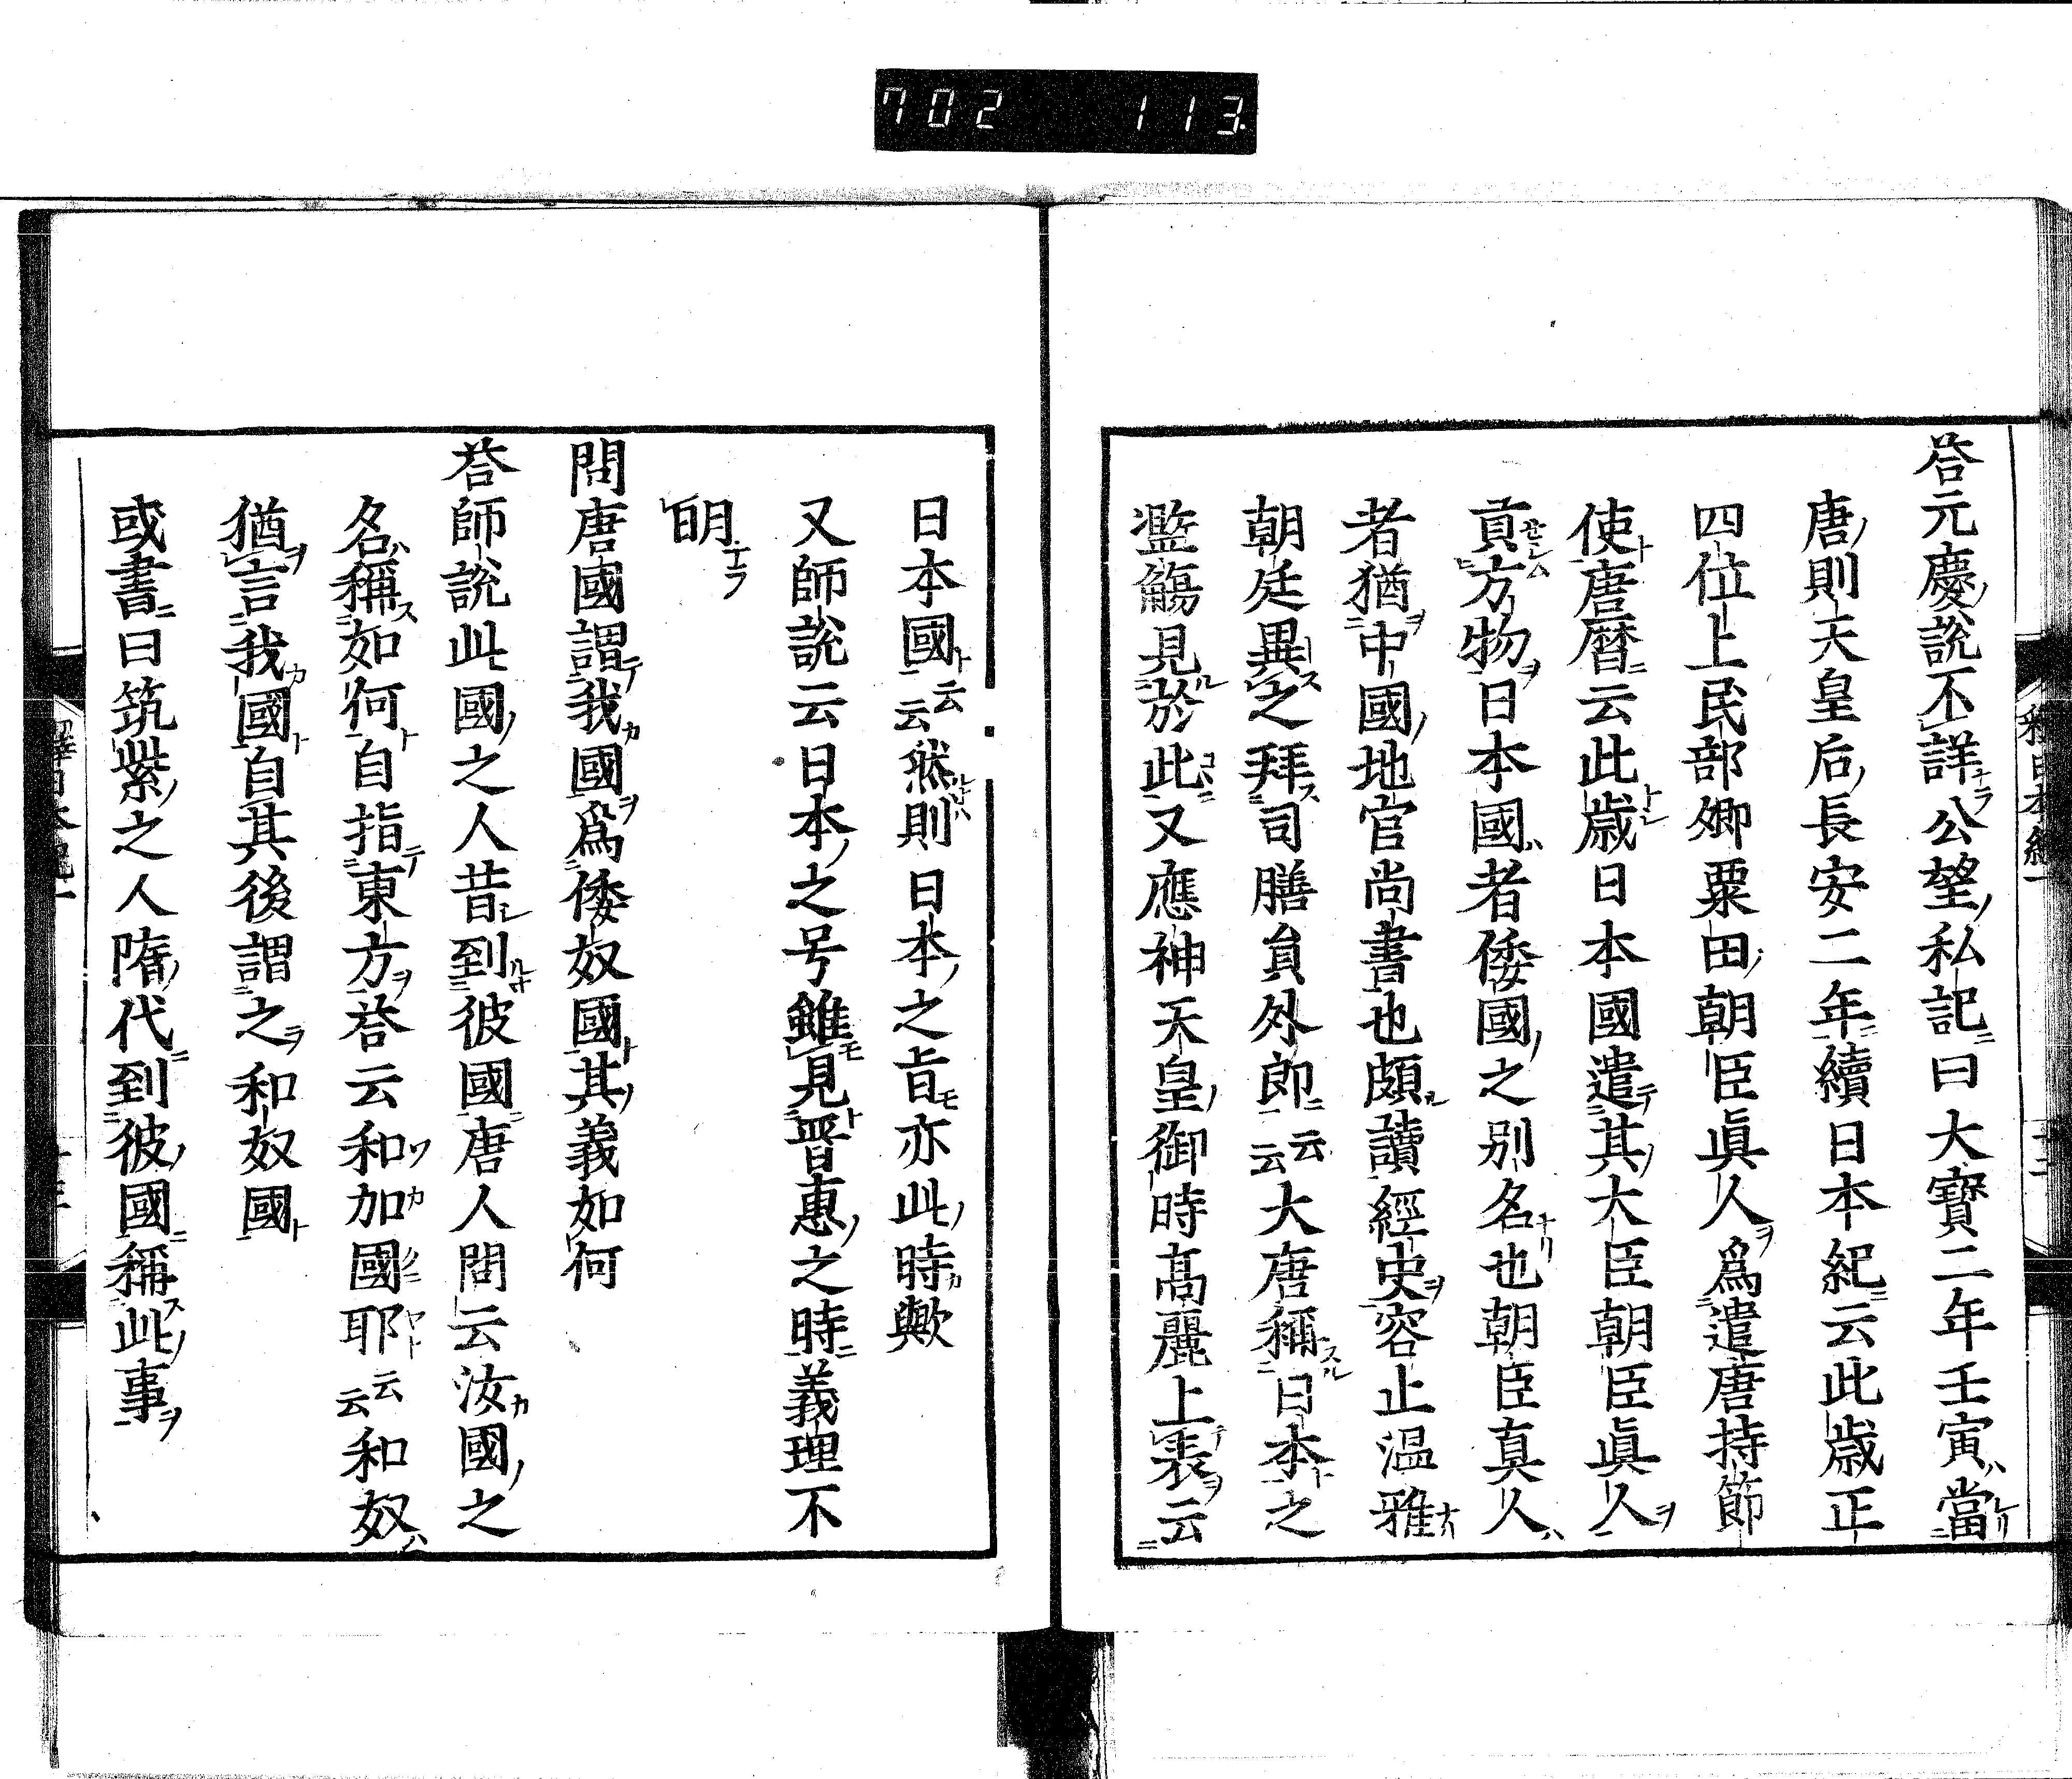 702 113
答元慶説不詳公望私記曰大寶二年壬寅當
唐則天皇后長安二年續日本紀云此歳正
四位上民部卿粟田朝臣眞人爲遣唐持節
使唐暦云此歳日本國遣其大臣朝臣眞人
貢方物日本國者倭國之別名也朝臣真人
者猶中國地官尚書也頗讀經史容止温雅
朝廷異之拜司膳貟外郎云云大唐稱日本之
濫觴見於此又應神天皇御時髙麗上表云
日本國云云然則日本之旨亦此時歟
又師説云日本之号雖見晋惠之時義理不
明
問唐國謂我國爲倭奴國其義如何
答師説此國之人昔到彼國唐人問云汝國之
名稱如何自指東方答云和加國耶云云和奴
猶言我國自其後謂之和奴國
或書曰筑紫之人隋代到彼國稱此事